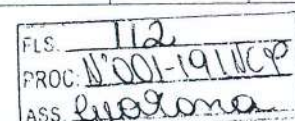 FLS. 112
PROC: Nº001-191NCP
ASS.